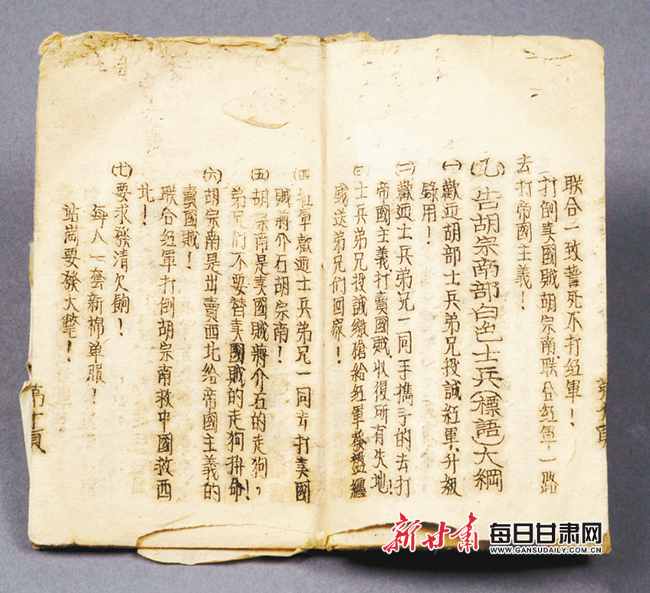 联合一致誓死不打红軍！
打倒卖國賊胡宗南联合红軍一路
去打帝國主義！
(九)告胡宗南部白色士兵(標語)大綱
(一)歡迎胡部士兵弟兄投誠紅軍,升級
錄用！
(二)歡迎士兵弟兄一同手攜手的去打
帝國主義打賣國賊收復所有失地！
(三)士兵弟兄投誠繳槍給紅軍發盤纏
歡送弟兄們回家！
(四)紅軍歡迎士兵弟兄一同去打卖國
賊蔣介石胡宗南！
(五)胡宗南是卖國賊蔣介石的走狗，
弟兄们不要替卖國賊的走狗拼命！
(六)胡宗南是出賣西北給帝國主義的
賣國賊！
联合红軍打倒胡宗南救中國救西
北！
(七)要求發清欠餉！
每人一套新棉单服！
站崗要發大氅！
新甘肃 每日甘肃网
WWW.GANSUDAILY.COM.CN